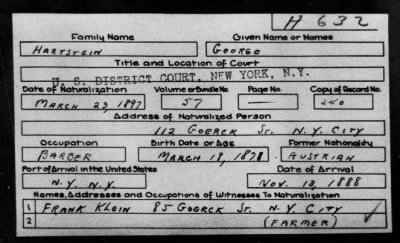 H 632
Family Name Given Name or Names
HARTSTEIN GEORGE
Title and Location of Court
U. S. DISTRICT COURT, NEW YORK, N.Y.
Date of Naturalization Volume or Bundle No. Page No. Copy of Record No.
MARCH 23, 1897 57 — 240
Address of Naturalized Person
112 GOERCK ST. N.Y. CITY
Occupation Birth Date or Age Former Nationality
BARBER MARCH 18, 1878 AUSTRIAN
Port of Arrival in the United States Date of Arrival
N.Y. N.Y. NOV. 13, 1888
Names, Addresses and Occupations of Witnesses To Naturalization
1 FRANK KLEIN 85 GOERCK ST. N.Y. CITY
2 (FARMER)